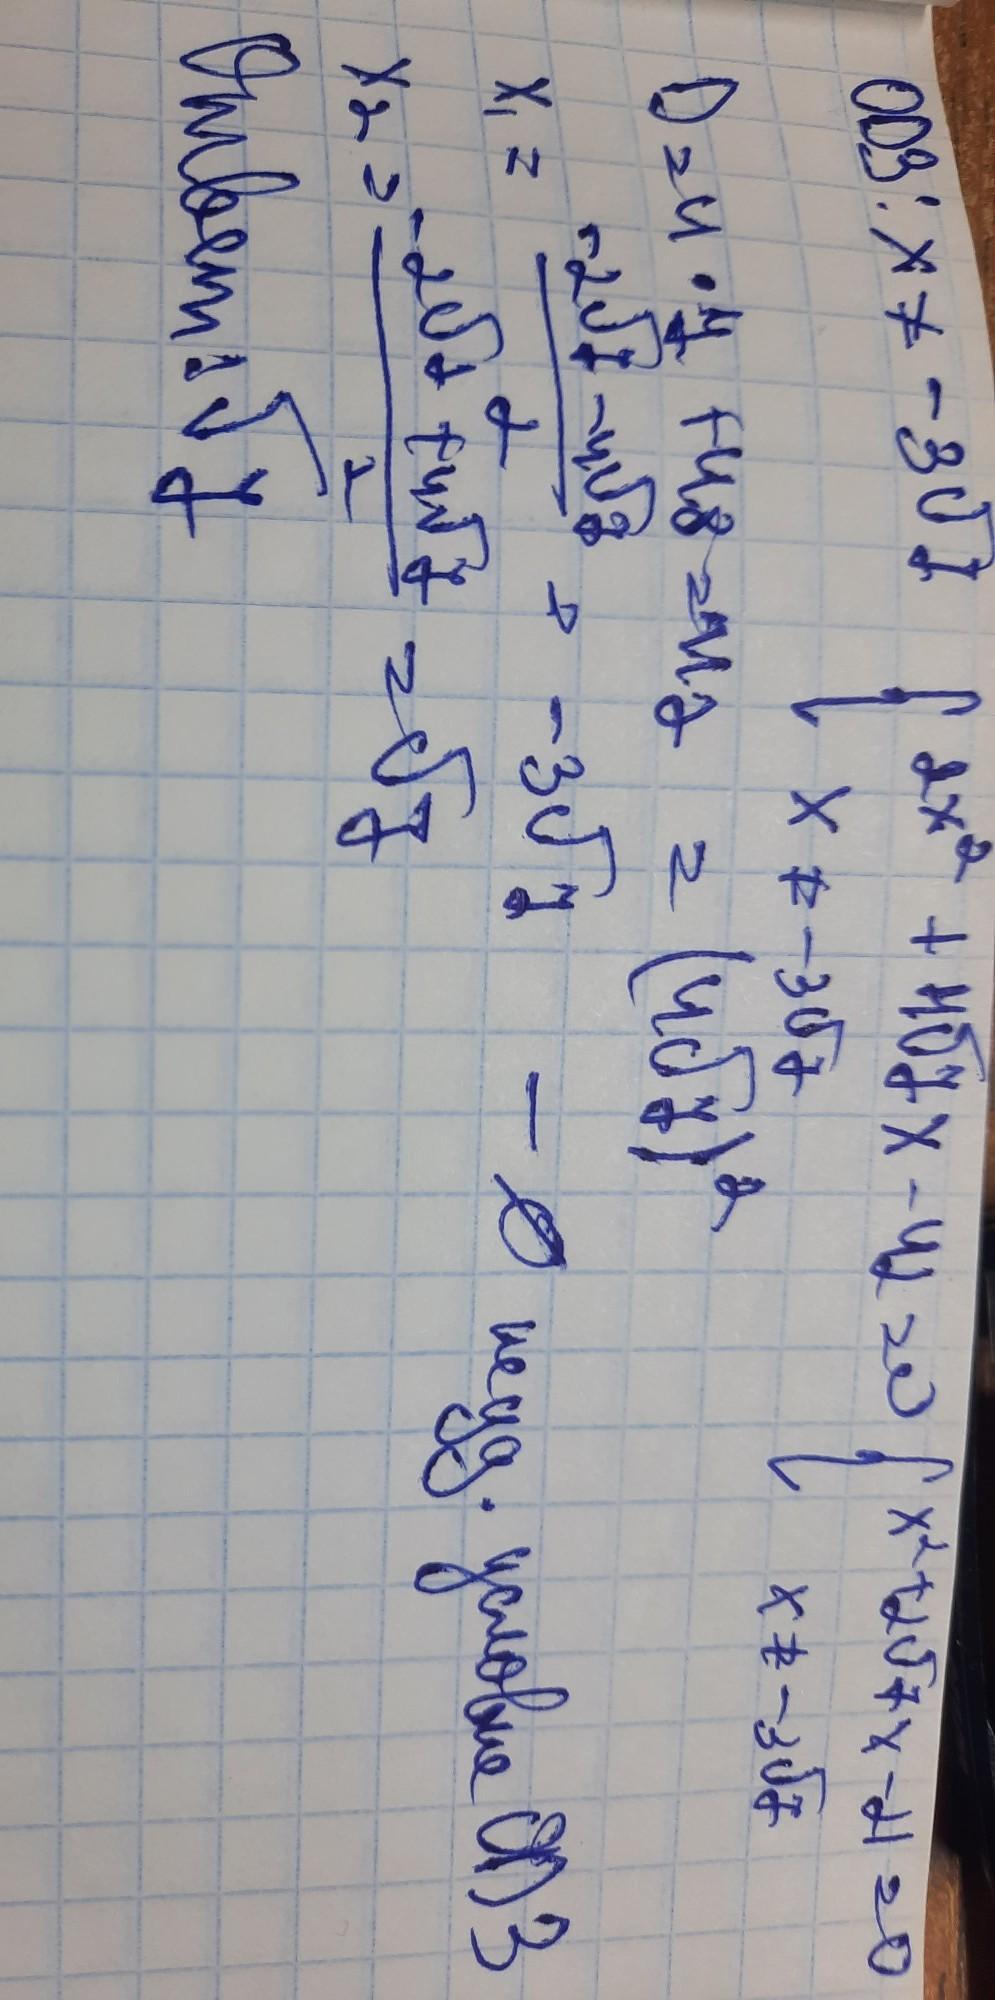 ОДЗ: x ≠ -3√7 { 2x² + 4√7x - 42 = 0 { x² + 2√7x - 21 = 0
x ≠ -3√7 x ≠ -3√7
D = 4 · 7 + 48 = 112 = (4√7)²
x₁ = (-2√7 - 4√7)/2 = -3√7 - ∅ неуд. условие ОДЗ
x₂ = (-2√7 + 4√7)/2 = √7
Ответ: √7